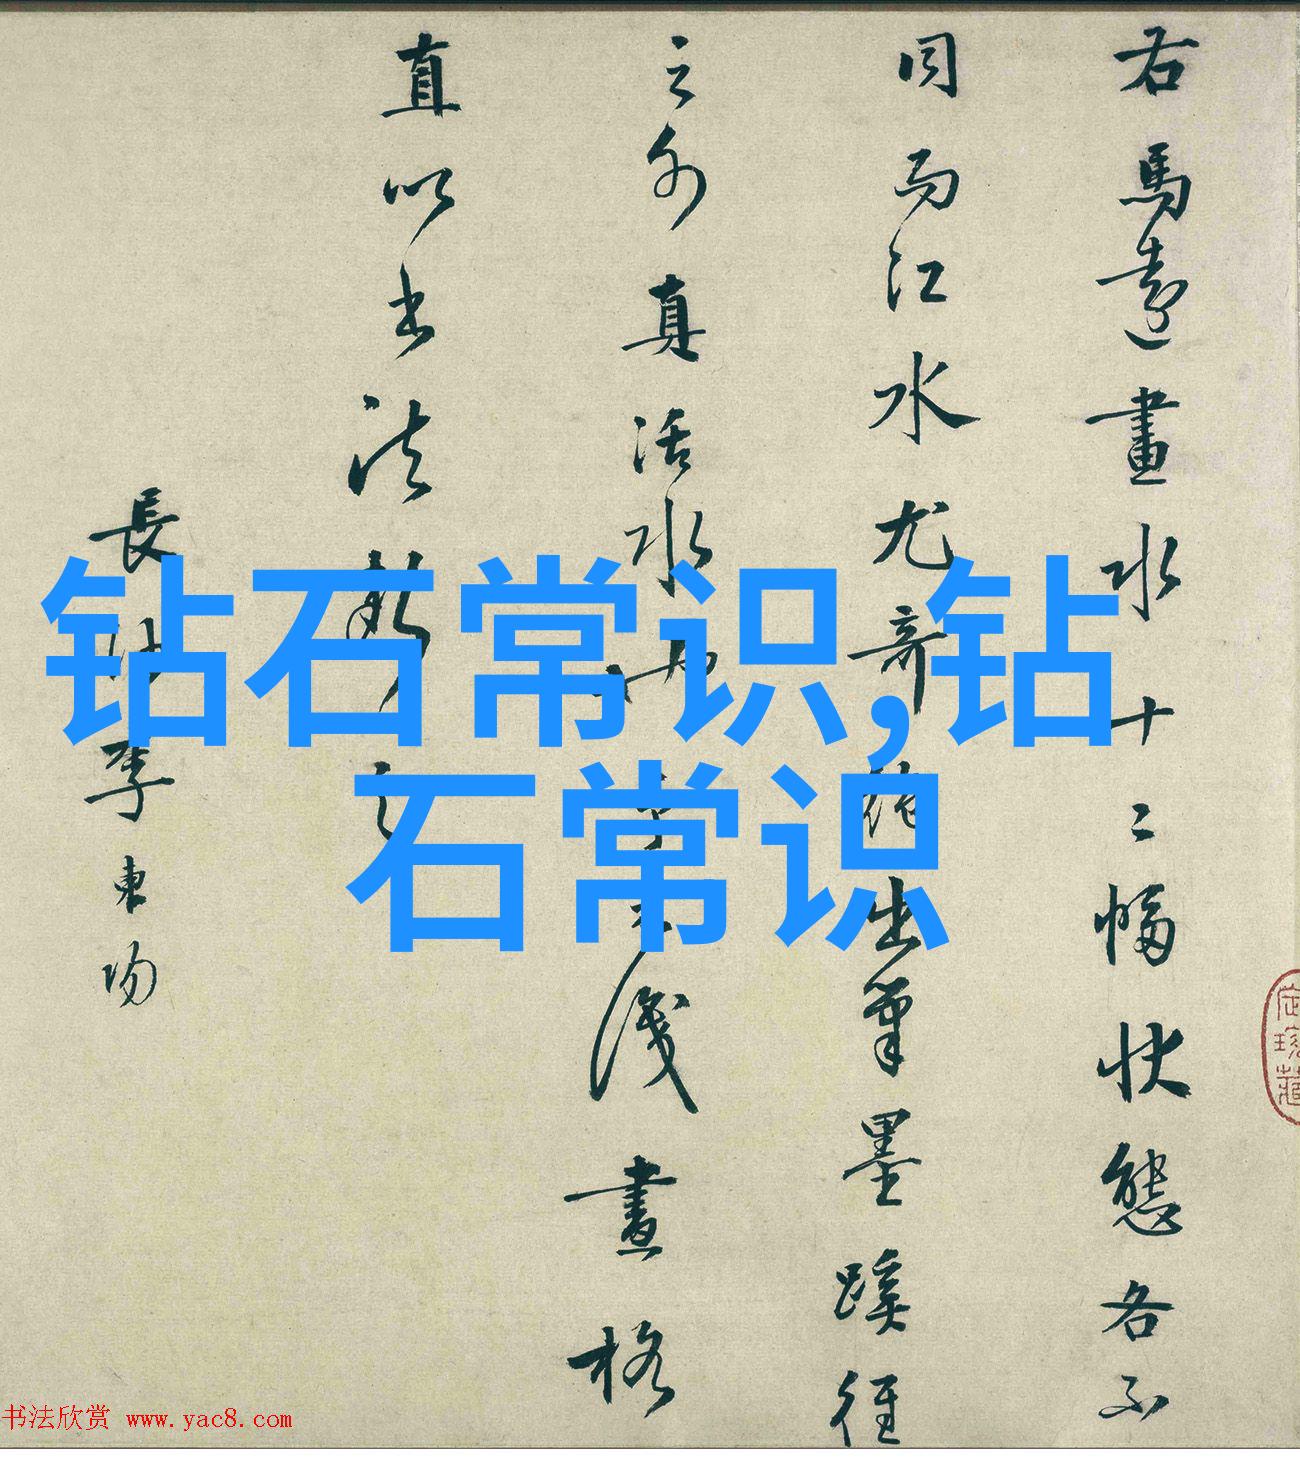 右馬遠畫水十二幅狀態各不
同而江水尤奇絕出筆墨蹊徑
之外真活水也予不識畫格
直以書法斷之
長沙李東陽
钻石常识,钻
石常识
书法欣赏 www.yac8.com